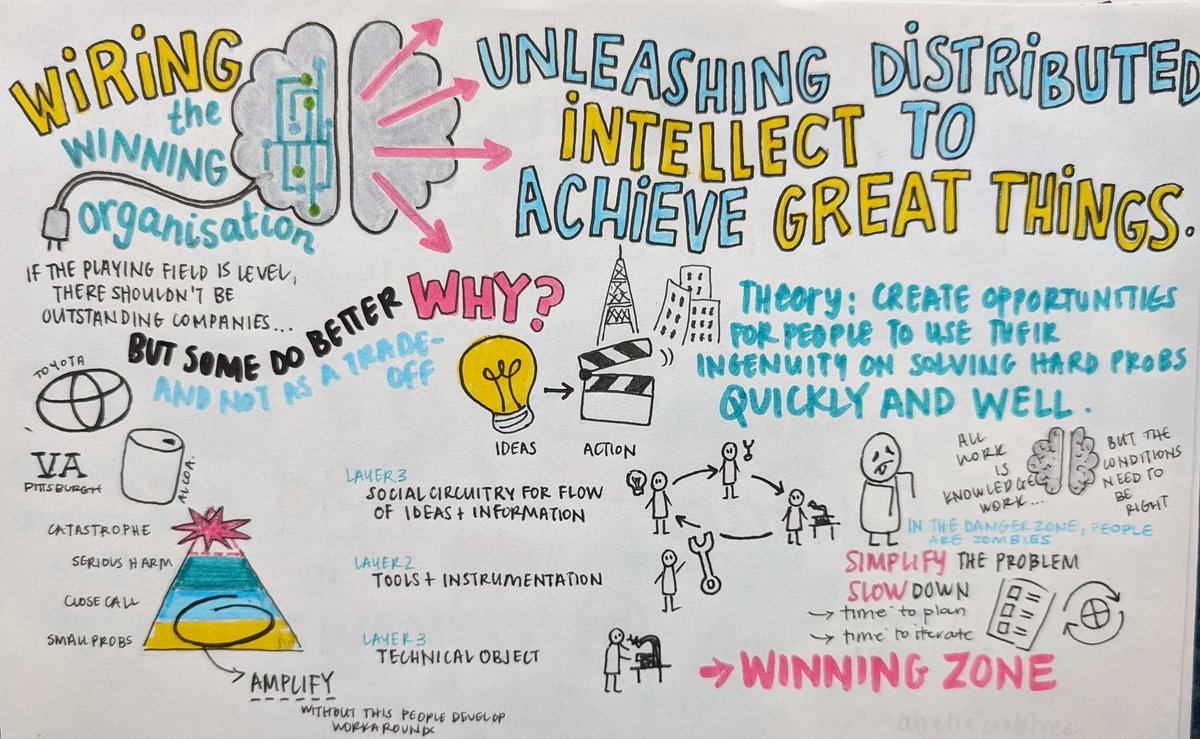 WiRiNG
the
WINNING
organisation
UNLEASHING DiSTRiBUTED
iNTELLECT TO
ACHiEVE GREAT THiNGS.
IF THE PLAYING FIELD IS LEVEL,
THERE SHOULDN'T BE
OUTSTANDING COMPANIES...
BUT SOME DO BETTER
AND NOT AS A TRADE-
OFF
WHY?
IDEAS
ACTION
THEORY: CREATE OPPORTUNITIES
FOR PEOPLE TO USE THEIR
INGENUITY ON SOLVING HARD PROBS
QUICKLY AND WELL.
TOYOTA
VA
PITTSBURGH
ALCOA.
CATASTROPHE
SERIOUS HARM
CLOSE CALL
SMALL PROBS
AMPLIFY
WITHOUT THIS PEOPLE DEVELOP
WORKAROUNDS
LAYER 3
SOCIAL CIRCUITRY FOR FLOW
OF IDEAS + INFORMATION
LAYER 2
TOOLS + INSTRUMENTATION
LAYER 3
TECHNICAL OBJECT
ALL
WORK
IS
KNOWLEDGE
WORK...
BUT THE
CONDITIONS
NEED TO
BE
RIGHT
IN THE DANGER ZONE, PEOPLE
ARE ZOMBIES
SIMPLIFY THE PROBLEM
SLOW DOWN
→ time to plan
→ time to iterate
→ WINNING ZONE